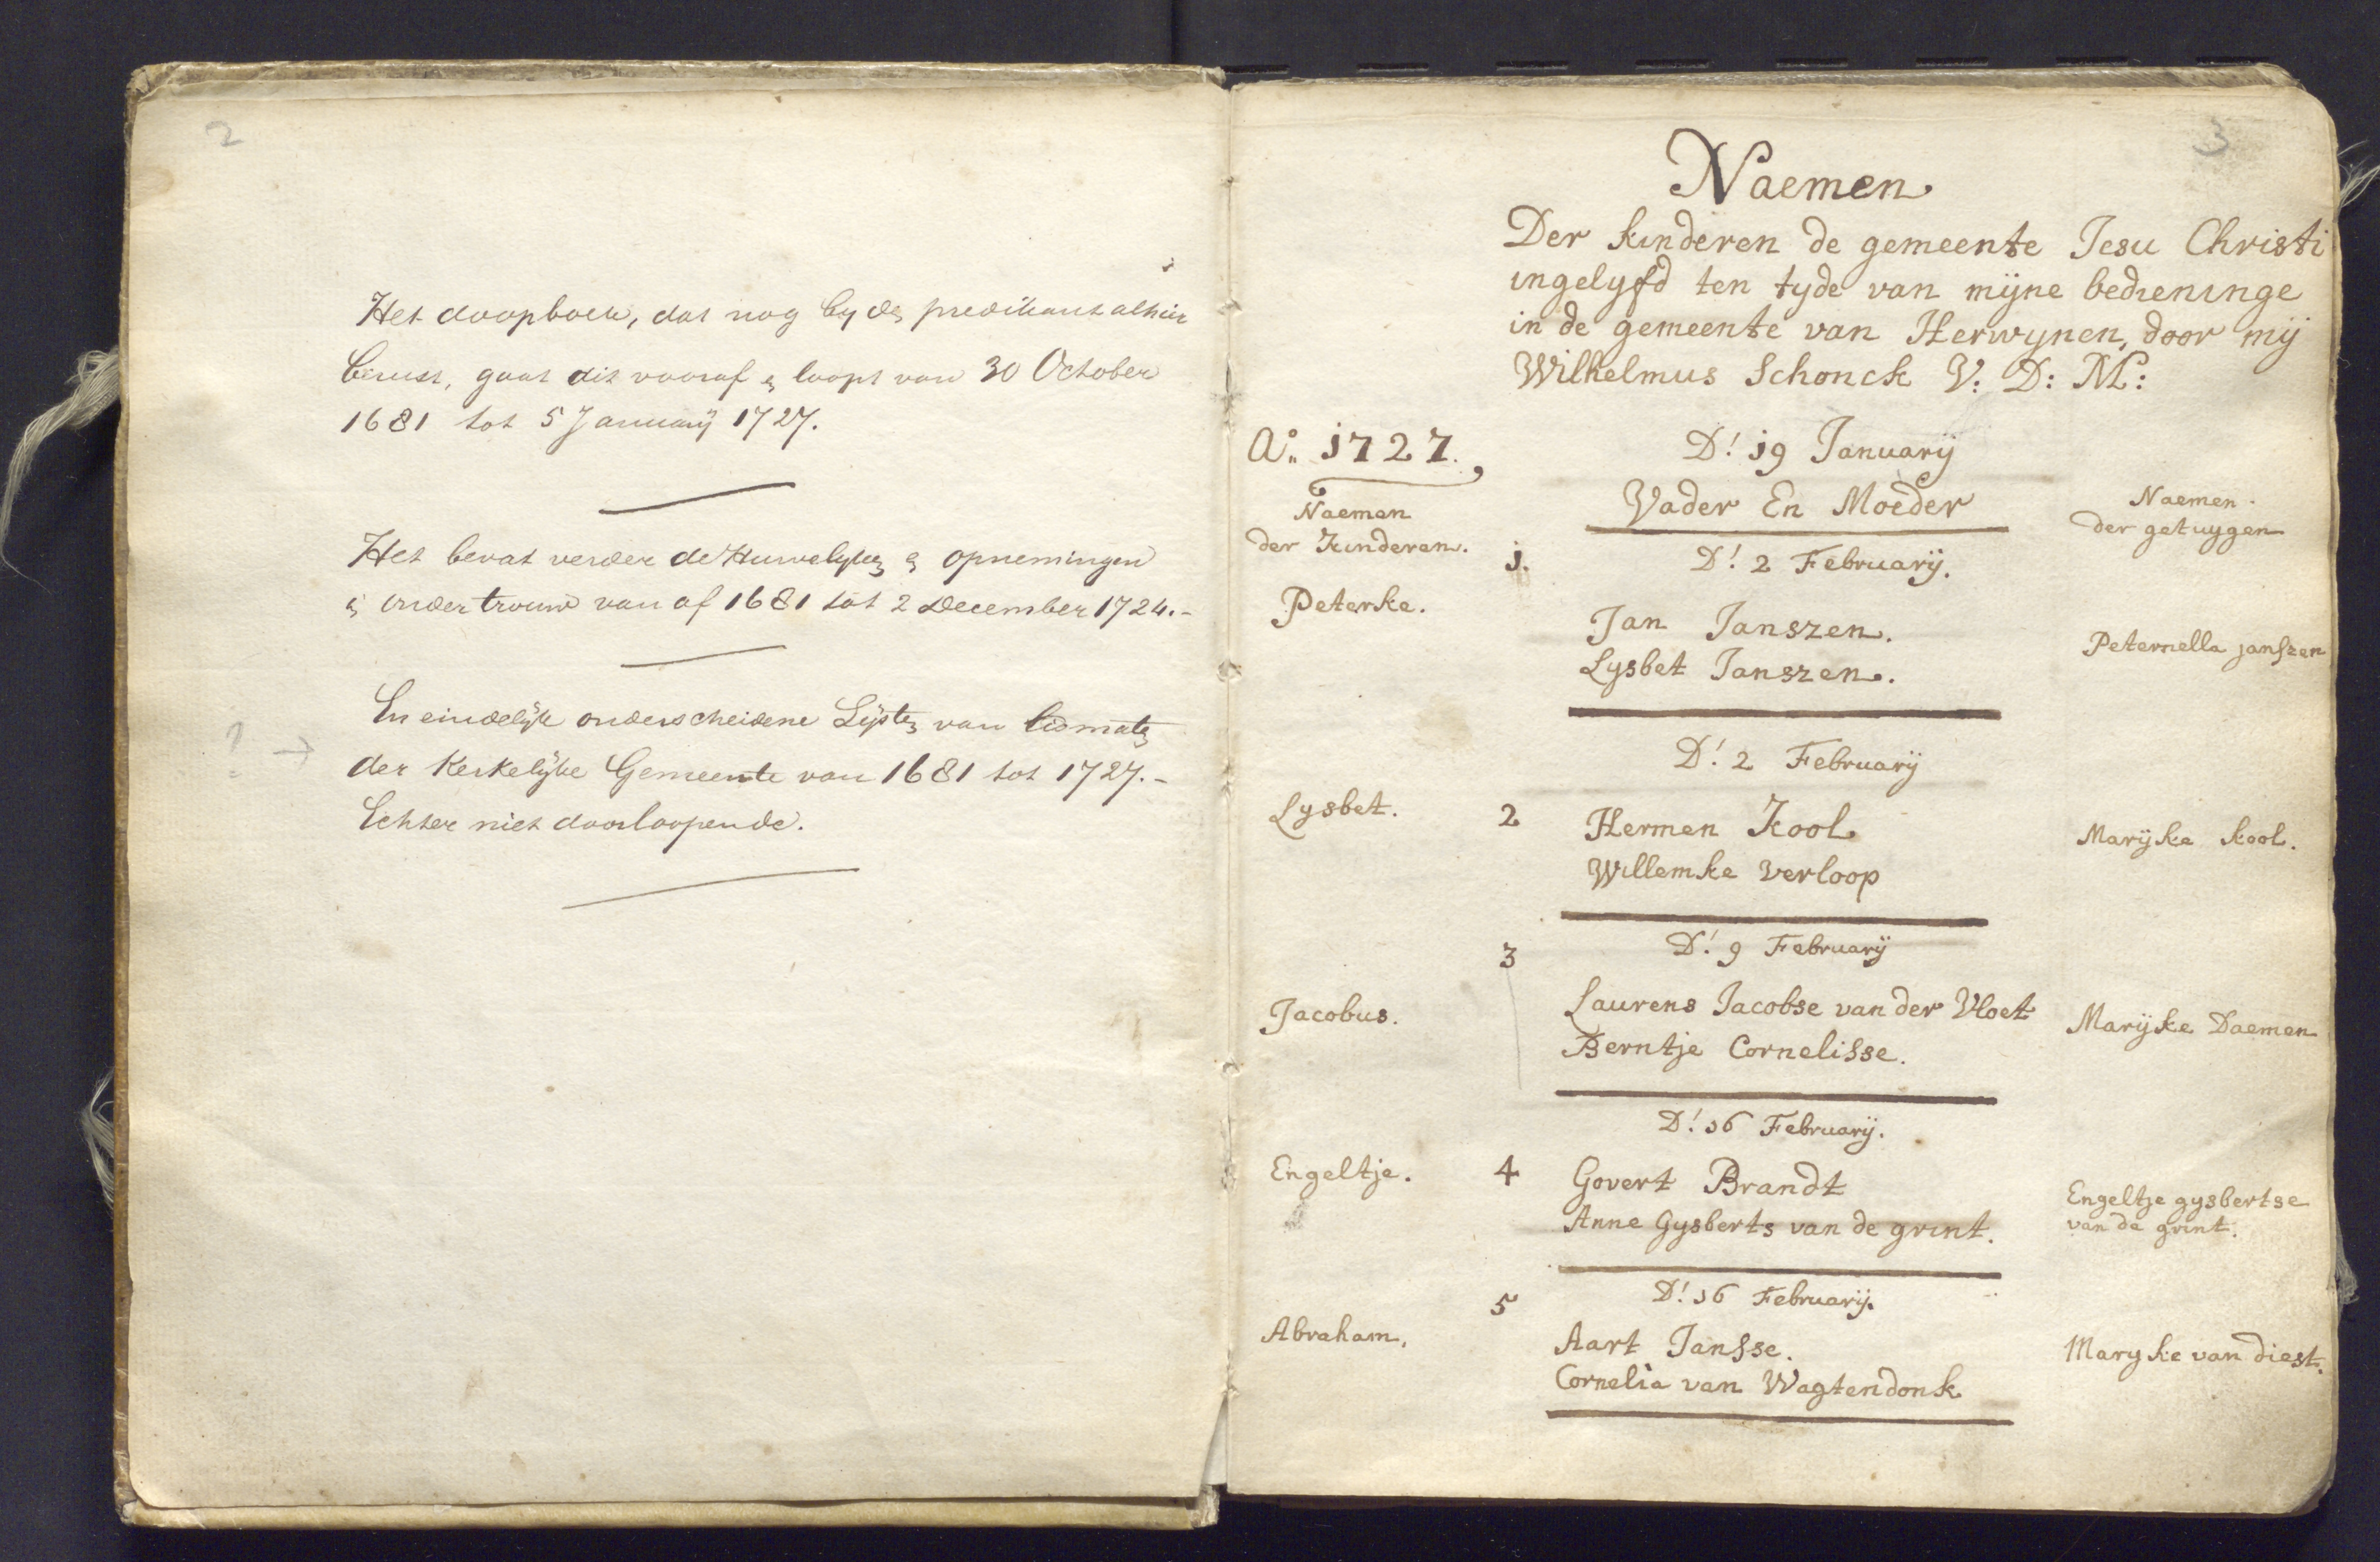 2
Het doopboek, dat nog by den predikant alhier
berust, gaat dit vooraf en loopt van 30 October
1681 tot 5 January 1727.
Het bevat verder de Huwelyken en opnemingen
en ondertrouw van af 1681 tot 2 December 1724.-
? →
En eindelijk onderscheidene Lijsten van lidmaten
der Kerkelijke Gemeente van 1681 tot 1727.-
Echter niet doorloopende.
3
Naemen
Der kinderen de gemeente Jesu Christi
ingelyfd ten tyde van mijne bedieninge
in de gemeente van Herwynen, door mij
Wilhelmus Schonck V: D: M:
Ao. 1727.
D! 19 Januarij
Naemen
der Kinderen.
Vader En Moeder
Naemen.
der getuygen
1.
D! 2 Februarij.
Peterke.
Jan Janszen.
Lysbet Janszen.
Peternella janszen
D! 2 Februarij
Lysbet.
2
Hermen Kool
Willemke verloop
Marijke kool.
3
D! 9 Februarij
Jacobus.
Laurens Jacobse van der Vloet
Berntje Cornelisse.
Marijke Daemen
D! 16 Februarij.
Engeltje.
4
Govert Brandt
Anne Gysberts van de grint.
Engeltje gysbertse
van de grint.
5
D! 16 Februarij.
Abraham.
Aart Jansse.
Cornelia van Wagtendonk
Maryke van diest.